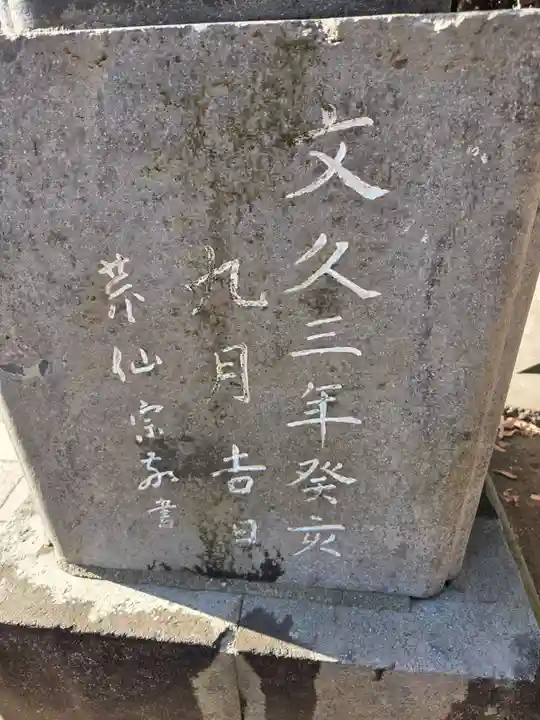 文久三年癸亥
九月吉日
荒仙宗敬書